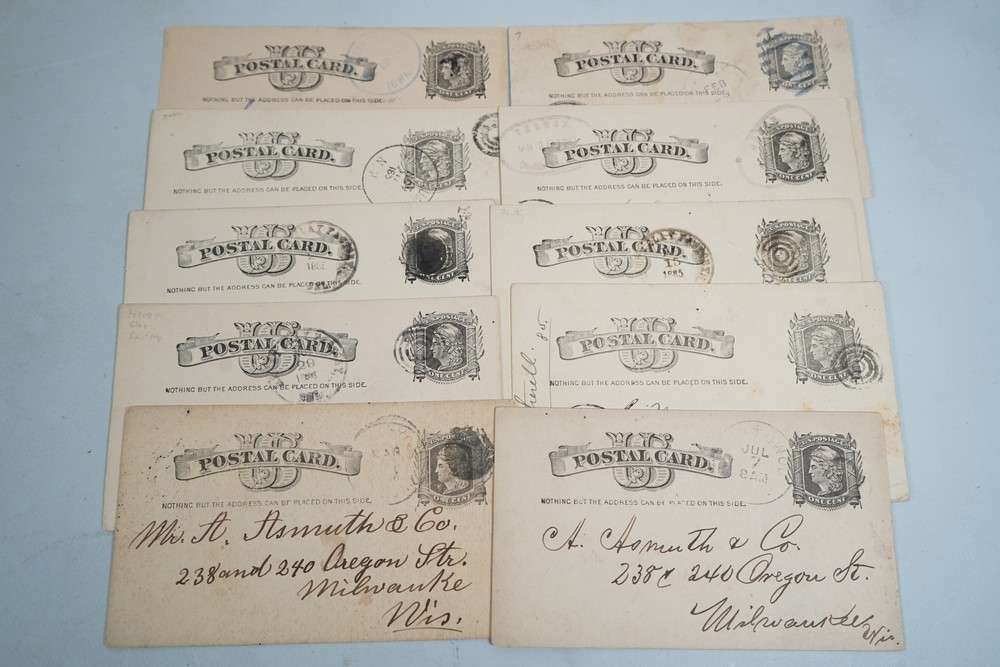 POSTAL CARD.
U.S. POSTAGE
ONE CENT
NOTHING BUT THE ADDRESS CAN BE PLACED ON THIS SIDE.
POSTAL CARD.
FEB
NOTHING BUT THE ADDRESS CAN BE PLACED ON THIS SIDE.
POSTAL CARD.
ONE CENT
NOTHING BUT THE ADDRESS CAN BE PLACED ON THIS SIDE.
POSTAL CARD.
U.S. POSTAGE
ONE CENT
NOTHING BUT THE ADDRESS CAN BE PLACED ON THIS SIDE.
POSTAL CARD.
U.S. POSTAGE
ONE CENT
NOTHING BUT THE ADDRESS CAN BE PLACED ON THIS SIDE.
POSTAL CARD.
15
1885
U.S. POSTAGE
ONE CENT
NOTHING BUT THE ADDRESS CAN BE PLACED ON THIS SIDE.
POSTAL CARD.
29
U.S. POSTAGE
ONE CENT
NOTHING BUT THE ADDRESS CAN BE PLACED ON THIS SIDE.
85.
POSTAL CARD.
U.S. POSTAGE
ONE CENT
NOTHING BUT THE ADDRESS CAN BE PLACED ON THIS SIDE.
POSTAL CARD.
MAR
U.S. POSTAGE
ONE CENT
NOTHING BUT THE ADDRESS CAN BE PLACED ON THIS SIDE.
Mr. A. Asmuth & Co.
238 and 240 Oregon Str.
Milwauke
Wis.
POSTAL CARD.
JUL
7
8 AM
U.S. POSTAGE
ONE CENT
NOTHING BUT THE ADDRESS CAN BE PLACED ON THIS SIDE.
A. Asmuth & Co.
238 & 240 Oregon St.
Milwaukee
Wis.